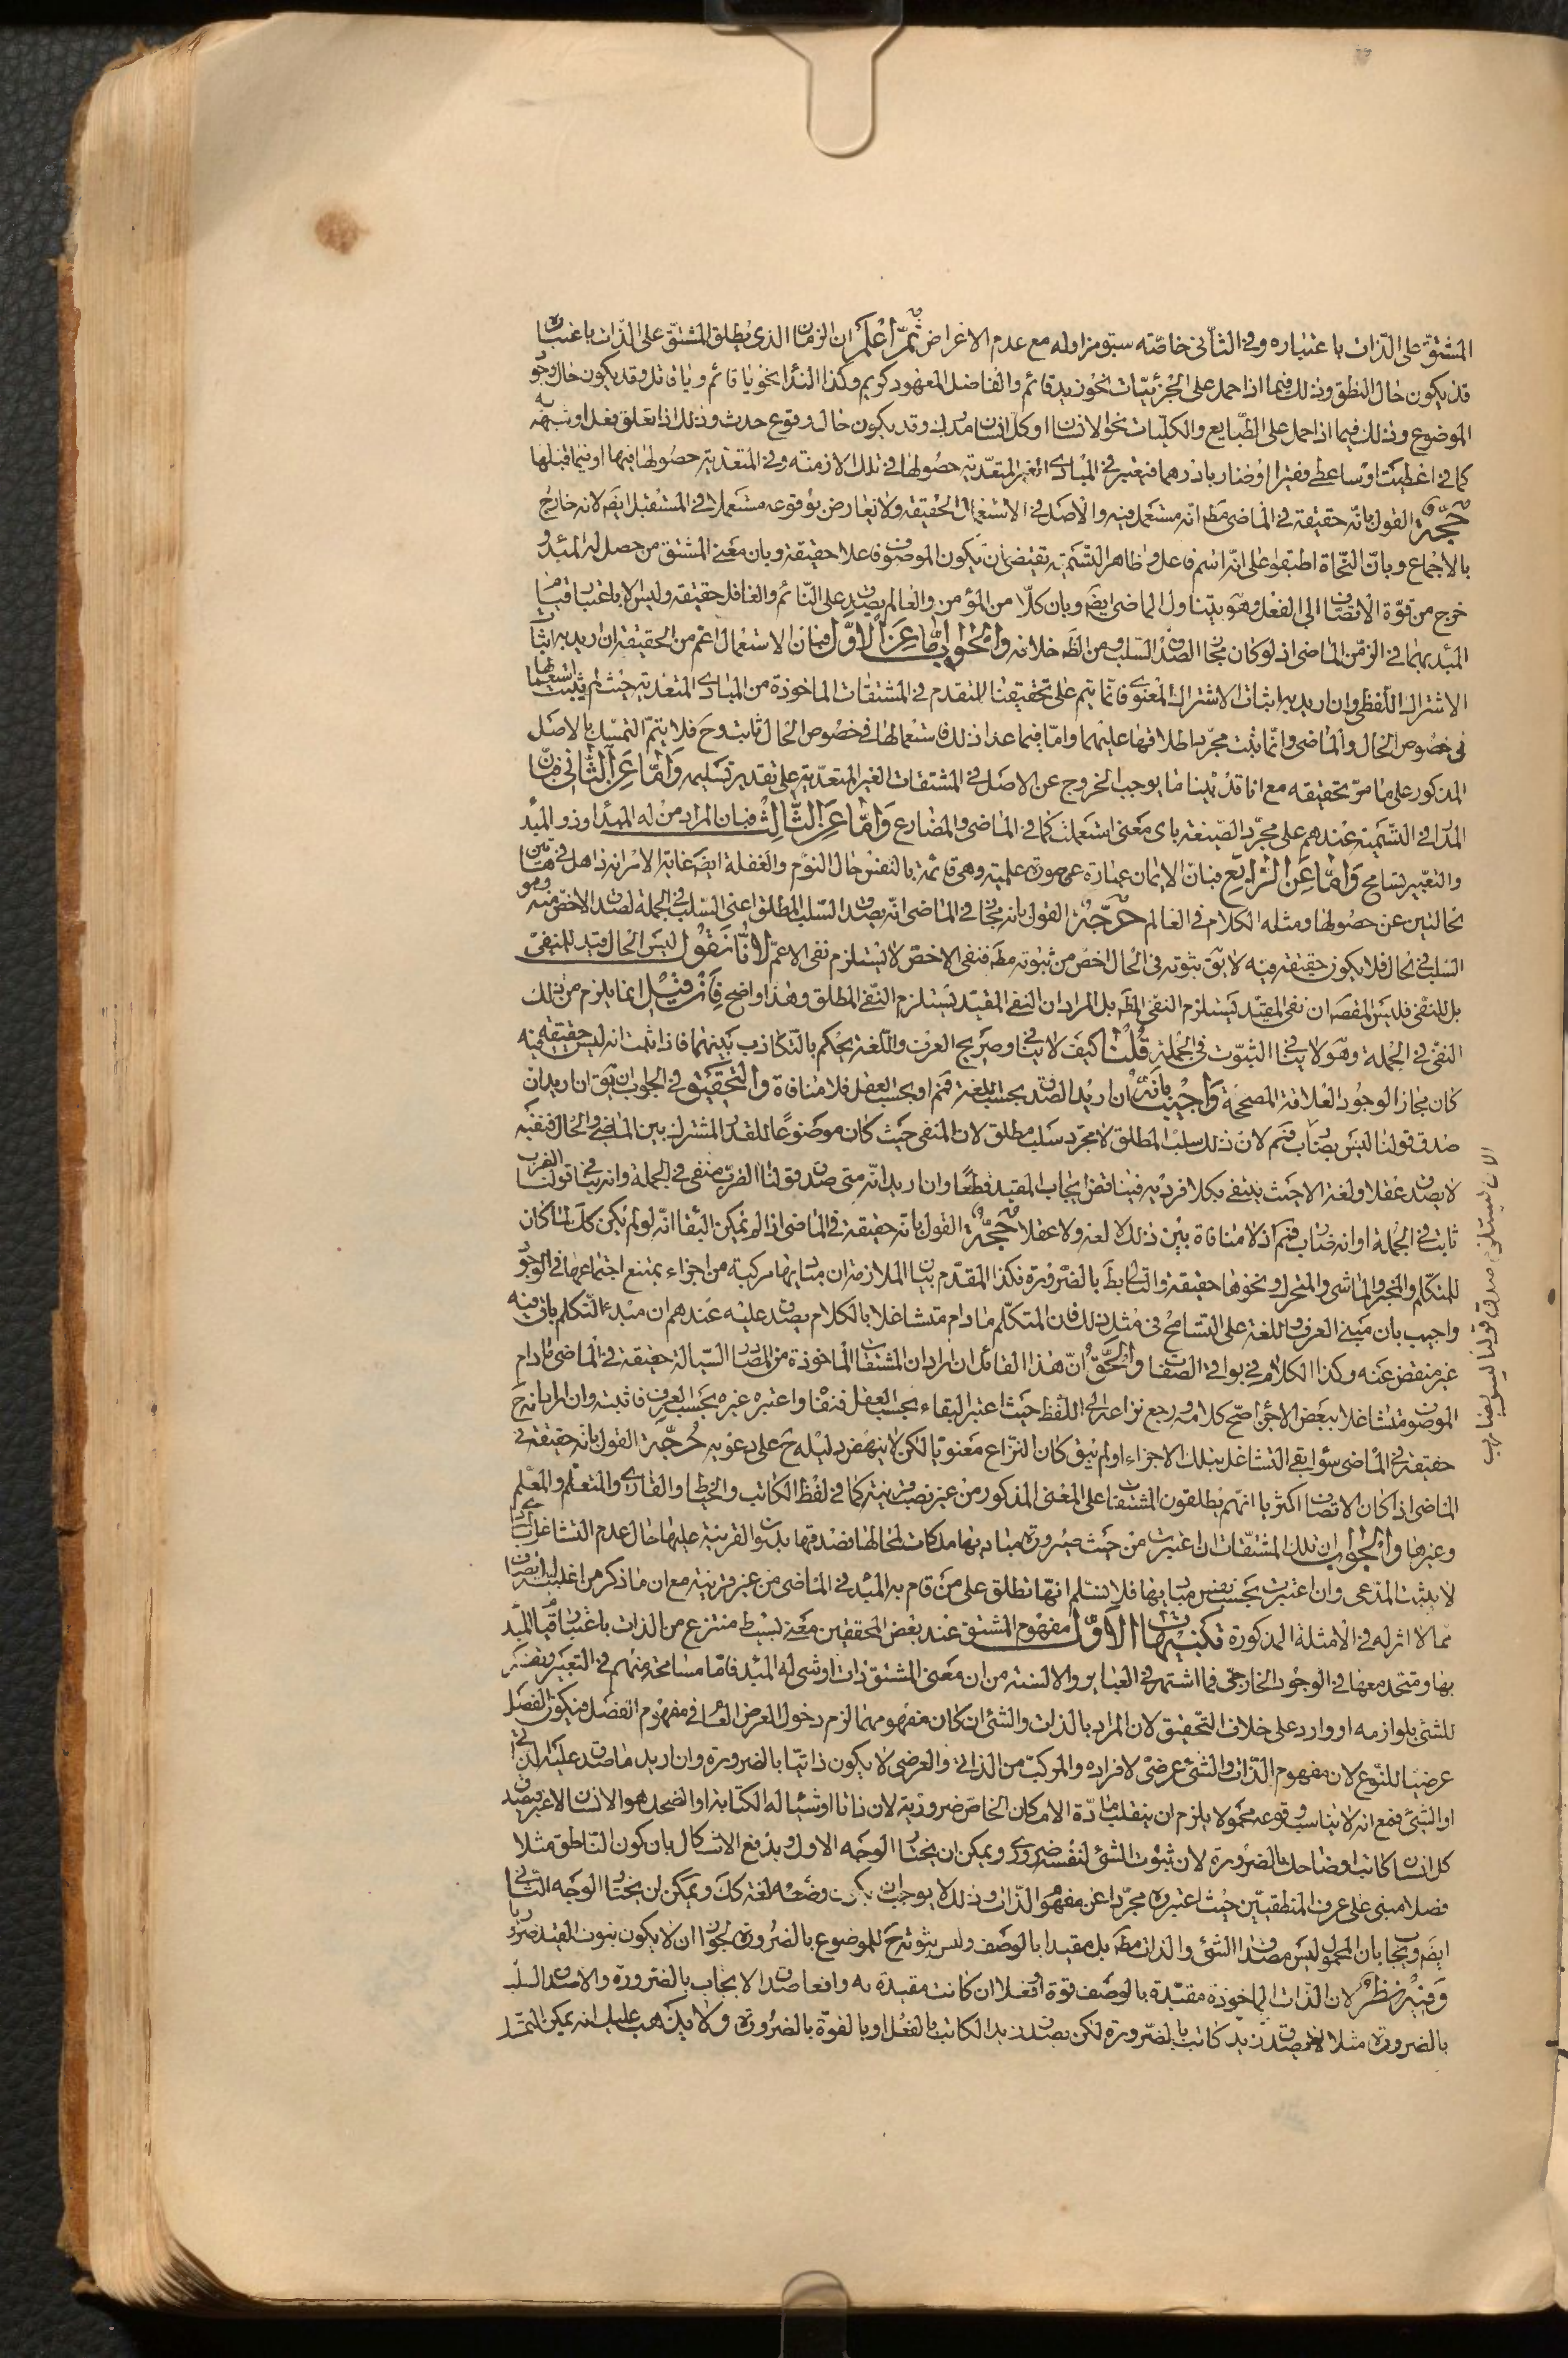 المشتق على الذات باعتباره وفي الثاني خاصته سبق مزاوله مع عدم الاعراض ثم اعلم ان الزمان الذي يطلق المشتق على الذات باعتباره
قد يكون حال النطق وذلك فيما اذا حمل على الجزئيات نحو زيد قائم والفاضل المعهود كريم وكذا النداء نحو يا قائم ويا قاتل وقد يكون حال وجود
الموضوع وذلك فيما اذا حمل على الطبايع والكليات نحو الانسان او كل انسان مدرك وقد يكون حال وقوع حدث وذلك اذا تعلق بفعل او شبهه
كما في اعطيت او ساعطي فقيرا او ضارباً درهما فيعتبر في المبادي الغير المتعدية حصولها في تلك الازمنة وفي المتعدية حصولها فيها او فيما قبلها
حجة القول بانه حقيقة في الماضي مطه انه مستعمل فيه والاصل في الاستعمال الحقيقة ولا يعارض بوقوعه مستعملا في المستقبل ايضه لانه خارج
بالاجماع وبان النحاة اطبقوا على انه اسم فاعل وظاهر التسمية تقتضي ان يكون الموصوف فاعلا حقيقة وبان معنى المشتق من حصل له المبدء و
خرج من قوة الاتصاف الى الفعل وهو يتناول الماضي ايضه وبان كلا من المؤمن والعالم يصدق على النائم والغافل حقيقة وليس الا باعتبار قيام
المبدء بهما في الزمن الماضي اذ لو كان مجازا لصدق السلب ومن الظه خلافه والجواب اما عن الاول فبان الاستعمال اعم من الحقيقة ان اريد به اثبات
الاشتراك اللفظي وان اريد به اثبات الاشتراك المعنوي فانما يتم على تحقيقنا المتقدم في المشتقات الماخوذة من المبادي المتعدية حيث لم يثبت استعمالها
في خصوص الحال والماضي وانما يثبت مجرد اطلاقها عليهما واما فيما عدا ذلك فاستعمالها في خصوص الحال ثابت وح فلا يتم التمسك بالاصل
المذكور على ما مر تحقيقه مع انا قد بينا ما يوجب الخروج عن الاصل في المشتقات الغير المتعدية على تقدير تسليمه واما عن الثاني فبان
المدار في التسمية عندهم على مجرد الصيغة باي معنى استعملت كما في الماضي والمضارع واما عن الثالث فبان المراد من له المبدء او ذو المبدء
والتعبير تسامح واما عن الرابع فبان الايمان عبارة عن صورة علمية وهي قائمة بالنفس حال النوم والغفلة ايضه غاية الامر انه ذاهل في هاتين
الحالتين عن حصولها ومثله الكلام في العالم حجة القول بانه مجاز في الماضي انه يصدق السلب المطلق اعني السلب في الجملة لصدق الاخص منه وهو
السلب في الحال فلا يكون حقيقة فيه لا يق ثبوته في الحال اخص من ثبوته مطه فنفي الاخص لا يستلزم نفي الاعم لانا نقول ليس الحال قيد للمنفي
بل للنفي فليس المقصه ان نفي المقيد يستلزم النفي المطه بل المراد ان النفي المقيد يستلزم النفي المطلق وهذا واضح فان قيل انما يلزم من ذلك
النفي في الجملة وهو لا ينافي الثبوت في الجملة قلنا كيف لا ينافي وصريح العرف واللغة يحكم بالتكاذب بينهما فاذا ثبت انه ليس حقيقة فيه
كان مجازا لوجود العلاقة المصححة واجيب بانه ان اريد الصدق بحسب اللغة فمم او بحسب العقل فلا منافاة والتحقيق في الجواب ان يق ان اريد ان
صدق قولنا ليس بضارب فمم لان ذلك سلب المطلق لا مجرد سلب مطلق لان المنفي حيث كان موضوعا للقدر المشترك بين الماضي والحال فنفيه
لا يصدق عقلا ولغة الا حيث ينتفي بكلا فرديه فيناقض ايجاب المقيد قطعا وان اريد انه متى صدق قولنا الضرب منفي في الجملة وانه ينافي قولنا الضرب
ثابت في الجملة او انه ضارب فمم اذ لا منافاة بين ذلك لا لغة ولا عقلا حجة القول بانه حقيقة في الماضي اذا لم يمكن البقاء انه لو لم يكن كك لما كان
للمتكلم والمخبر والماشي والمتحرك ونحوها حقيقة والتالي باطل بالضرورة فكذا المقدم بيان الملازمة ان مباديها مركبة من اجزاء يمتنع اجتماعها في الوجود
واجيب بان مبنى العرف واللغة على التسامح في مثل ذلك فان المتكلم ما دام متشاغلا بالكلام يصدق عليه عندهم ان مبدء التكلم باق فيه
غير منقض عنه وكذا الكلام في بواقي الصفات والحق ان هذا القائل ان اراد ان المشتقات الماخوذة من المصادر السيالة حقيقة في الماضي ما دام
الموصوف متشاغلا ببعض الاجزاء صح كلامه ورجع نزاعه الى اللفظ حيث اعتبر البقاء بحسب العقل فنفاه واعتبره غيره بحسب العرف فاثبته وان اراد انه ح
حقيقة في الماضي سواء بقي التشاغل بتلك الاجزاء او لم يبق كان النزاع معنويا لكن لا ينهض دليله ح على دعويه حجة القول بانه حقيقة في
الماضي اذا كان الاتصاف اكثريا انهم يطلقون المشتقات على المعنى المذكور من غير نصب قرينة كما في لفظ الكاتب والخياط والقاري والمتعلم والمعلم
وغيرها والجواب ان تلك المشتقات ان اعتبرت من حيث صيرورة مباديها ملكات لمحالها فصدقها بدون القرينة عليها حال عدم التشاغل بالمبادي
لا يثبت المدعى وان اعتبرت بحسب نفس مباديها فلا نسلم انها تطلق على من قام به المبدء في الماضي من غير قرينة مع ان ما ذكر من اغلبية الاتصاف
مما لا اثر له في الامثلة المذكورة تنبيهات الاول مفهوم المشتق عند بعض المحققين معنى بسيط منتزع من الذات باعتبار قيام المبدء
بها ومتحد معها في الوجود الخارجي فما اشتهر في العباير والالسنة من ان معنى المشتق ذات او شيء له المبدء فاما مسامحة منهم في التعبير وتفسير
للشيء بلوازمه او وارد على خلاف التحقيق لان المراد بالذات والشيء ان كان مفهومهما لزم دخول العرض العام في مفهوم الفصل فيكون الفصل
عرضيا للنوع لان مفهوم الذات والشيء عرضي لافراده والمركب من الذاتي والعرضي لا يكون ذاتيا بالضرورة وان اريد ما صدق عليه الذات
او الشيء فمع انه لا يناسب وقوعه محمولا يلزم ان ينقلب مادة الامكان الخاص ضرورية لان ذاتا او شيئا له الكتابة او الضحك هو الانسان لا غير فيصدق
كل انسان كاتب او ضاحك بالضرورة لان ثبوت الشيء لنفسه ضروري ويمكن ان يختار الوجه الاول ويدفع الاشكال بان كون الناطق مثلا
فصلا مبني على عرف المنطقيين حيث اعتبروه مجردا عن مفهوم الذات وذلك لا يوجب ان يكون وضعه لغة كك ويمكن ان يختار الوجه الثاني
ايضه ويجاب بان المحمول ليس مصداق الشيء والذات مطه بل مقيدا بالوصف وليس ثبوته ح للموضوع بالضرورة لجواز ان لا يكون ثبوت القيد ضروريا
وفيه نظر لان الذات الماخوذة مقيدة بالوصف قوة او فعلا ان كانت مقيدة به واقعا صدق الايجاب بالضرورة والا صدق السلب
بالضرورة مثلا لا يصدق زيد كاتب بالضرورة لكن يصدق زيد الكاتب بالفعل او بالقوة بالضرورة ولا يذهب عليك انه يمكن التمسك
الان يستلزم صدق قولنا ليس بضارب